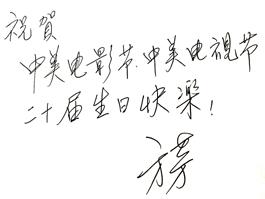 祝賀
中美电影节.中美电视节
二十届生日快樂!